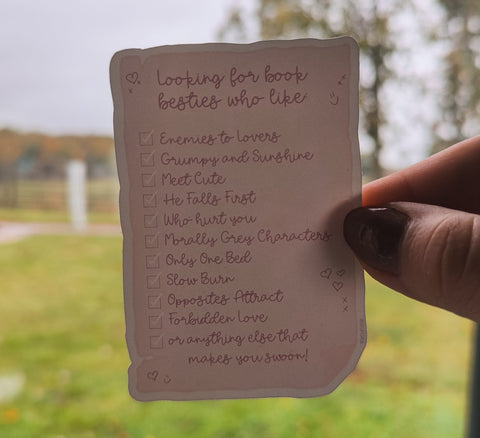 Looking for book
besties who like:
Enemies to Lovers
Grumpy and Sunshine
Meet Cute
He Falls First
Who hurt you
Morally Grey Characters
Only One Bed
Slow Burn
Opposites Attract
Forbidden Love
or anything else that
makes you swoon!